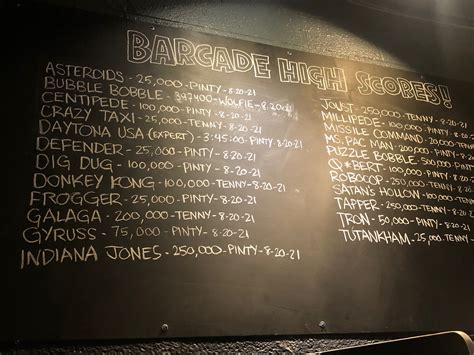 BARCADE HIGH SCORES!
ASTEROIDS - 25,000 - PINTY - 8-20-21
BUBBLE BOBBLE - 397400 - WOLFIE - 8-20-21
CENTIPEDE - 100,000 - PINTY - 8-20-21
CRAZY TAXI - 25,000 - TENNY - 8-20-21
DAYTONA USA (EXPERT) - 3:45:00 - PINTY - 8-20-21
DEFENDER - 25,000 - PINTY - 8-20-21
DIG DUG - 100,000 - PINTY - 8-20-21
DONKEY KONG - 100,000 - TENNY - 8-20-21
FROGGER - 25,000 - PINTY - 8-20-21
GALAGA - 200,000 - TENNY - 8-20-21
GYRUSS - 75,000 - PINTY - 8-20-21
INDIANA JONES - 250,000 - PINTY - 8-20-21
JOUST - 250,000 - TENNY - 8-20
MILLIPEDE - 100,000 - PINTY -
MISSILE COMMAND - 20,000 -
MS. PAC MAN - 200,000 - TENNY
PUZZLE BOBBLE - 500,000 -
Q*BERT - 100,000 - PINTY -
ROBOCOP - TENNY -
SATAN'S HOLLOW - TENNY
TAPPER - 250,000 - TENNY -
TRON - 50,000 - PINTY - 8-20
TUTANKHAM - 25,000 - TENNY